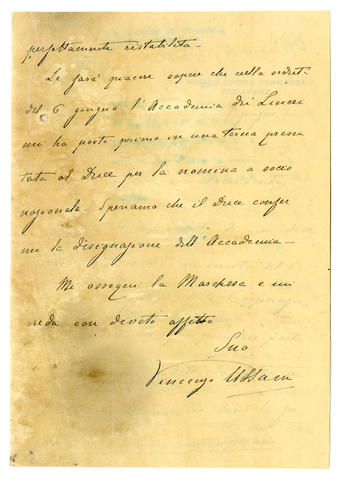 perfettamente ristabilita -
Le farà piacere sapere che nella seduta
del 6 giugno l'Accademia dei Lincei
mi ha posto primo in una terna presen
tata al Duce per la nomina a socio
nazionale. Speriamo che il Duce confer
mi la disegnazione dell'Accademia -
Mi ossequi la Marchesa e mi
creda con devoto affetto
Suo
Vincenzo Ussani